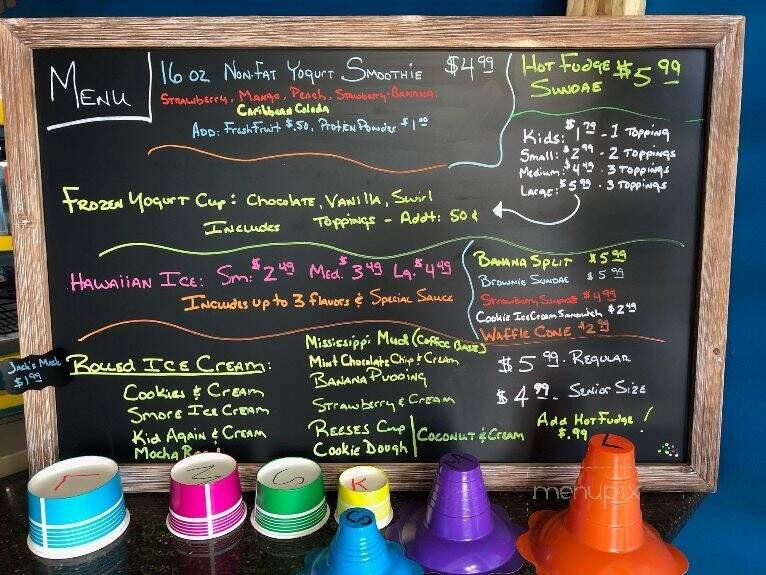 Menu
16 oz Non-Fat Yogurt Smoothie $4.99
Strawberry, Mango, Peach, Strawberry-Banana,
Caribbean Colada
Add: Fresh Fruit $.50, Protien Powder $1.00
Hot Fudge $5.99
Sundae
Kids: $1.79 - 1 Topping
Small: $2.99 - 2 Toppings
Medium: $4.49 - 3 Toppings
Large: $5.99 - 3 Toppings
Frozen Yogurt Cup: Chocolate, Vanilla, Swirl
Includes Toppings - Addt: 50¢
Hawaiian Ice: Sm: $2.49 Med. $3.49 La. $4.49
Includes up to 3 flavors & Special Sauce
Banana Split $5.99
Brownie Sundae $5.99
Strawberry Sundae $4.99
Cookie Ice Cream Sandwich $2.49
Waffle Cone $2.99
Jack's Mack
$1.99
Rolled Ice Cream:
Cookies & Cream
Smore Ice Cream
Kid Again & Cream
Mocha
Mississippi Mud (Coffee Base)
Mint Chocolate Chip & Cream
Banana Pudding
Strawberry & Cream
Reeses Cup
Cookie Dough
Coconut & Cream
$5.99 - Regular
$4.99 - Senior Size
Add Hot Fudge!
$.99
L
M
S
K
S
M
L
menupix